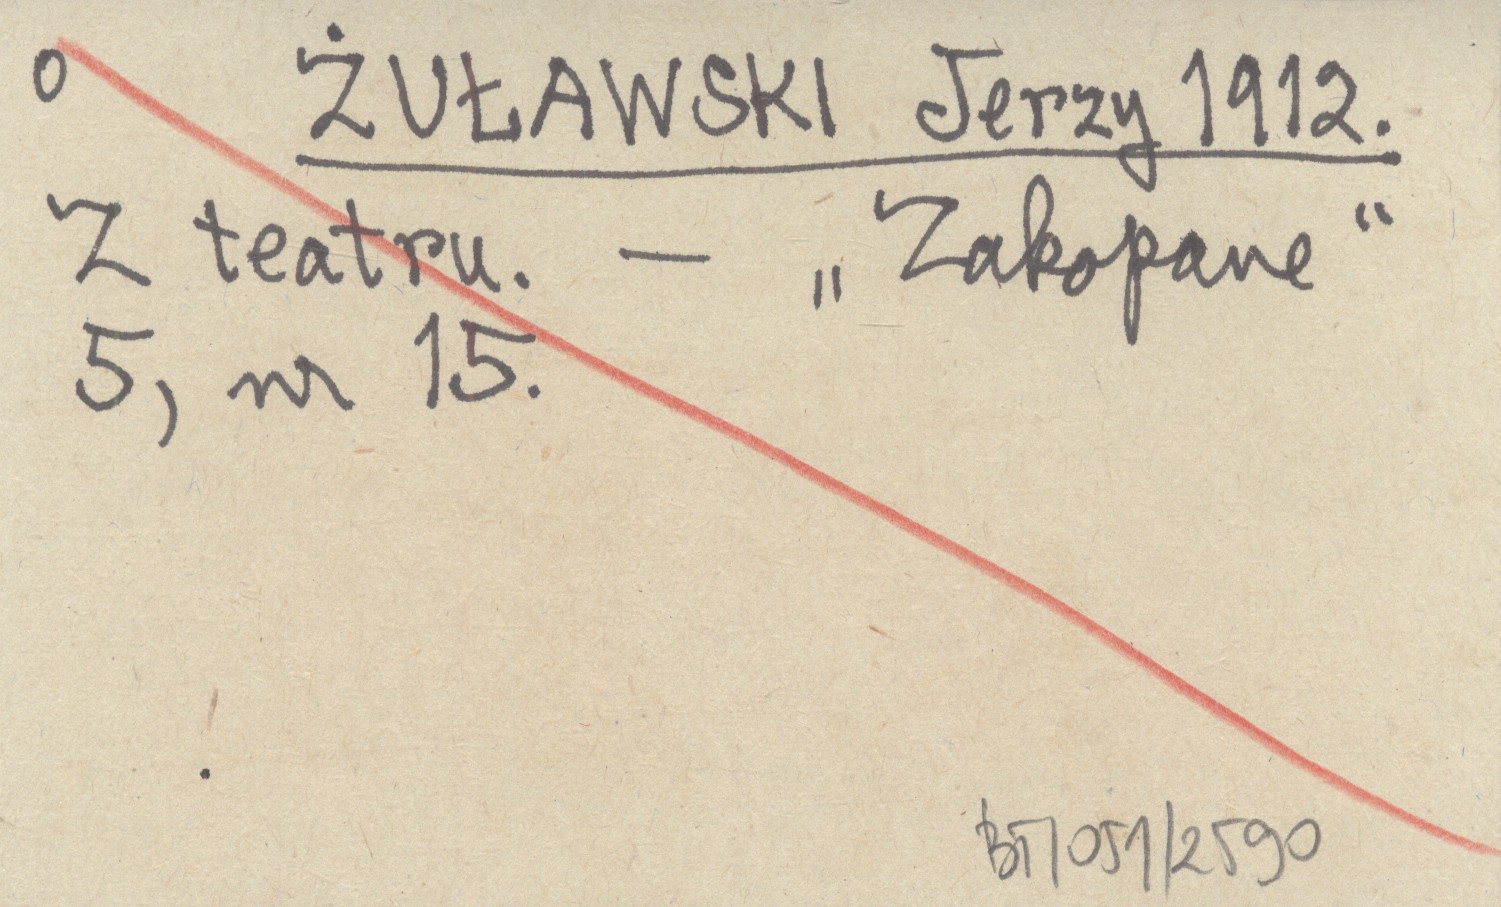 0 ŻUŁAWSKI Jerzy 1912.
Z teatru. — „Zakopane“
5, nr 15.
BT/051/2590